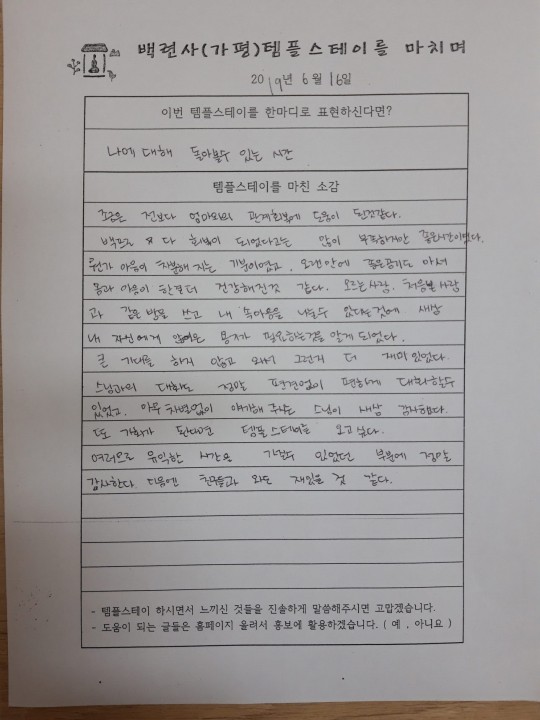 백련사(가평)템플스테이를 마치며
2019년 6월 16일
이번 템플스테이를 한마디로 표현하신다면?
나에 대해 돌아볼수 있는 시간
템플스테이를 마친 소감
조금은 전보다 엄마와의 관계회복에 도움이 된것같다.
백프로 다 회복이 되었다고는 많이 부족하지만 좋은시간이였다.
뭔가 마음이 차분해 지는 기분이였고, 오랜만에 좋은공기도 마셔
몸과 마음이 한결 더 건강해진것 같다. 모르는사람, 처음본 사람
과 같은 방을 쓰고 내 속마음을 나눌수 있다는것에 새삼
내 자신에게 용기가 필요하는것을 알게되었다.
큰 기대를 하지 않고 와서 그런지 더 재미있었다.
스님과의 대화도 정말 편견없이 편하게 대화할수
있었고, 아무 차별없이 얘기해 주시는 스님이 새삼 감사했다.
또 기회가 된다면 템플스테이를 오고싶다.
여러모로 유익한 시간을 가질수 있었던 부분에 정말
감사한다. 다음엔 친구들과 와도 재밌을 것 같다.
- 템플스테이 하시면서 느끼신 것들을 진솔하게 말씀해주시면 고맙겠습니다.
- 도움이 되는 글들은 홈페이지 올려서 홍보에 활용하겠습니다. ( 예 , 아니요 )